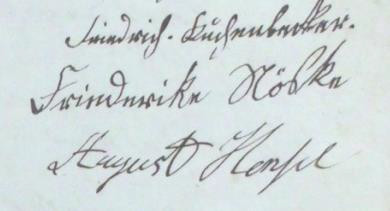 Friedrich. Kuchenbecker.
Frinderike Nöske
August Hensel